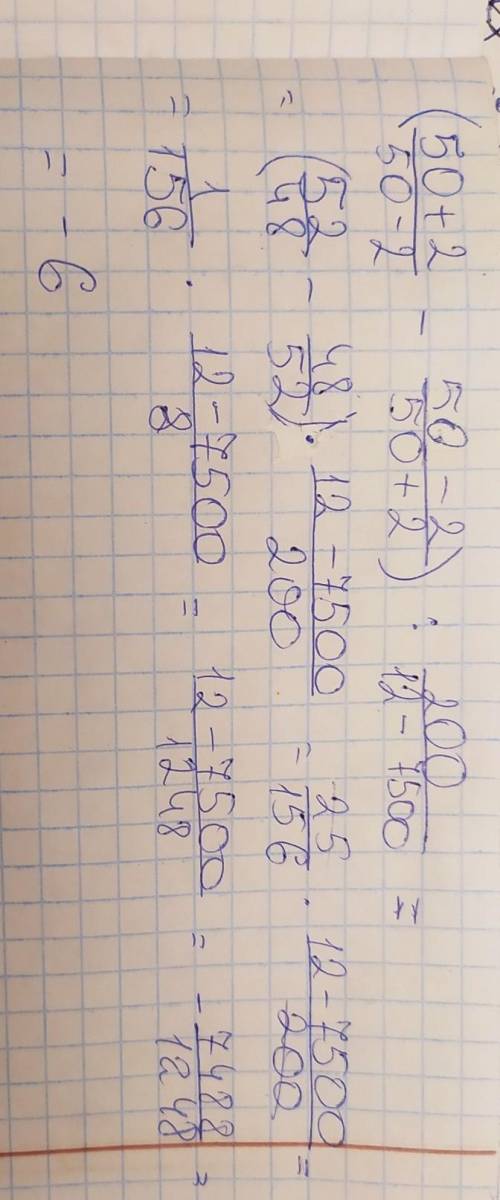 (50+2/50-2 - 50-2/50+2) : 200/12-7500 =
= (52/48 - 48/52) · 12-7500/200 = 25/156 · 12-7500/200 =
= 1/156 · 12-7500/8 = 12-7500/1248 = -7488/1248 =
= -6